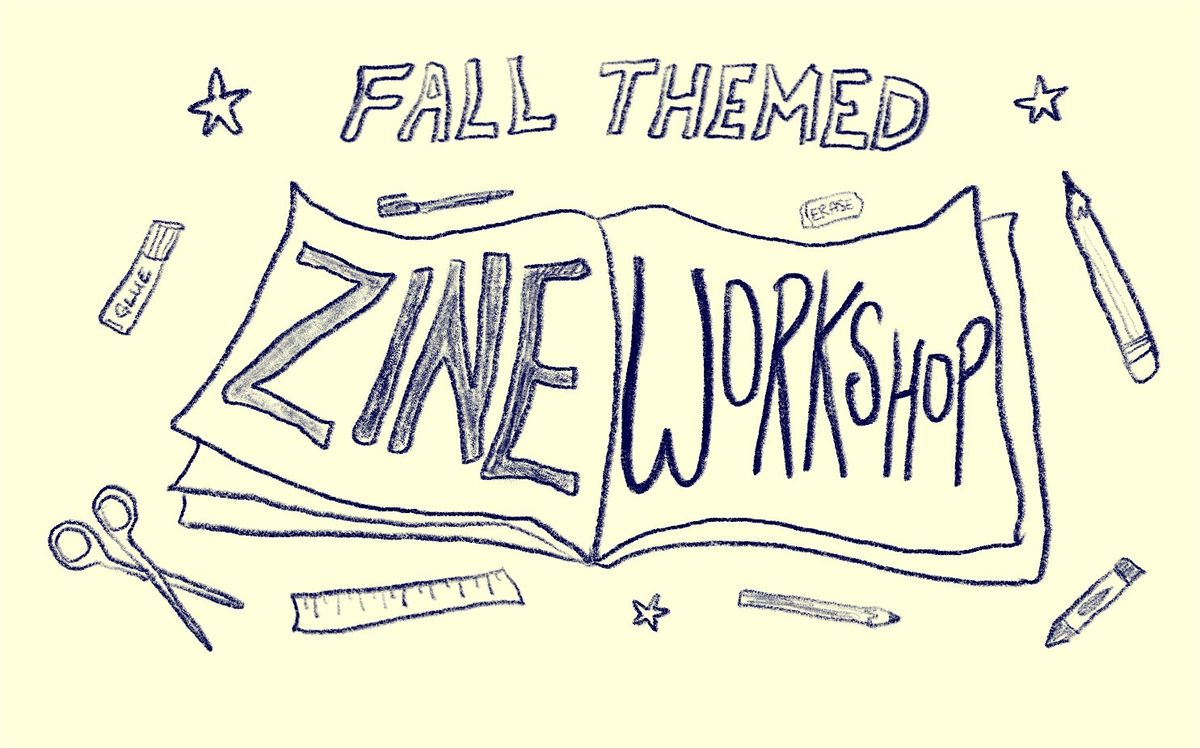 FALL THEMED
ERASE
GLUE
ZINE
WORKSHOP